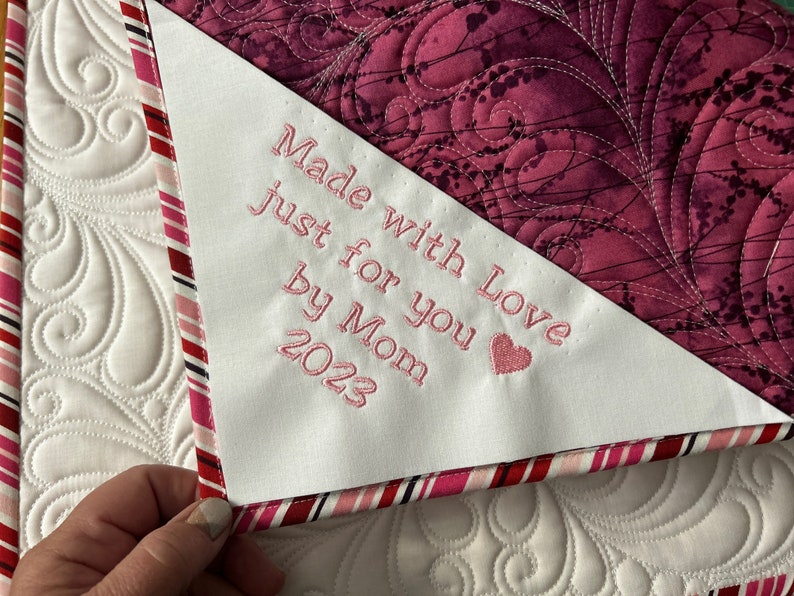 Made with Love
just for you
by Mom
2023